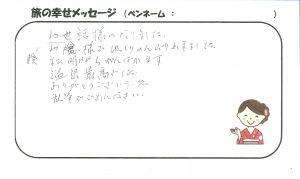 旅の幸せメッセージ (ペンネーム：　　　　　)
お世話様になりました。
お陰様でゆっくりのんびりできました。
また明日からがんばります
温泉最高でした。
ありがとうございました。
乱筆でごめんなさい。